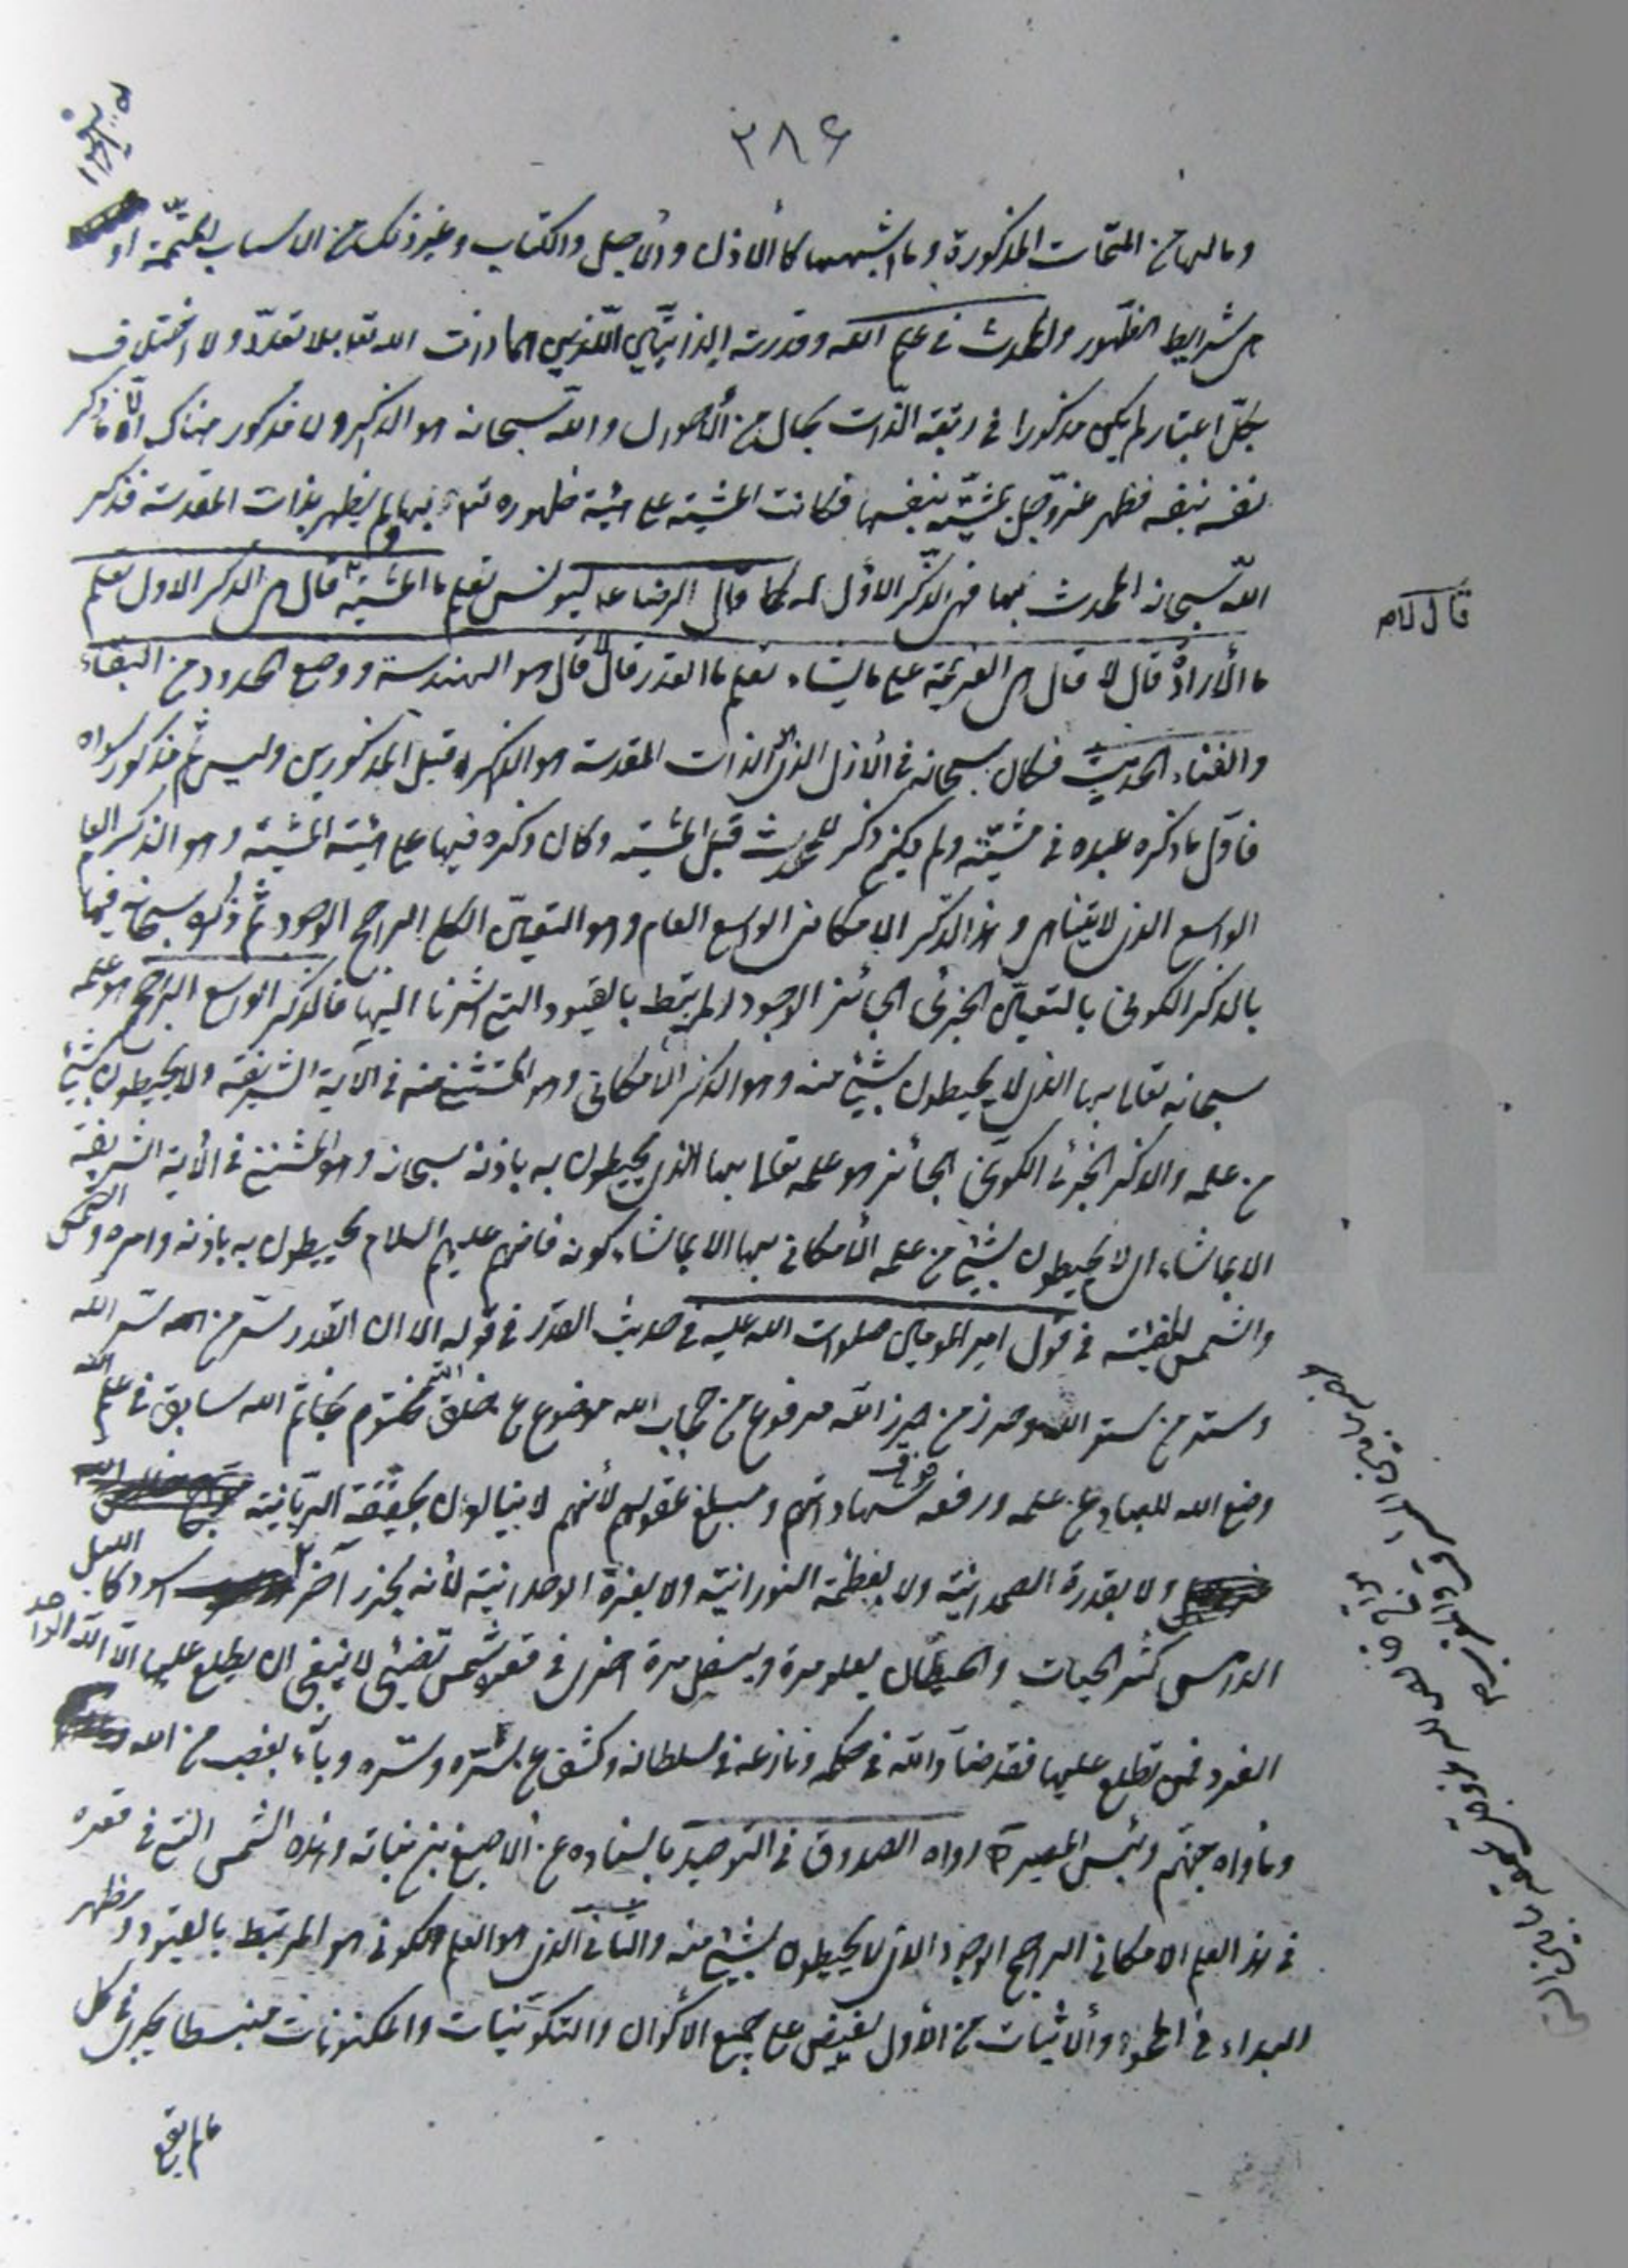 ٢٨۶
وما لها من المتمّات المذكورة وما اشبهها كالأذن والأجل والكتاب وغير ذلك من الاسباب المتمّمة او
هى شرايط الظهور والمحدث فى علم الله وقدرته الذاتيّين اللّذين هما ذات الله تعا بلا تعدّد ولا اختلاف
بكلّ اعتبار لم يكن مذكورا فى رتبة الذّات بحال من الأحوال والله سبحانه هو الذاكر ولا مذكور هناك الّا ذكر
نفسه بنفسه فظهر عزّ وجلّ بمشيّته بنفسها فكانت المشيّة على هيئة ظهوره تعا بها ولم يظهر بذات المقدسة فذكر
الله سبحانه المحدث بها فهى الذّكر الاوّل له كما قال الرضا ع ليونس تعلم ما المشيّة قال لا قال هى الذكر الاول تعلم
قال لا
ما الأرادة قال لا قال هى العزيمة على ما يشاء تعلم ما القدر قال لا قال هو الهندسة ووضع الحدود من البقاء
والفناء الحديث فكان سبحانه فى الأزل الذى هو الذات المقدسة هو الذاكر قبل المذكورين وليس ثَمّ مذكور سواه
فاوّل ما ذكره عبده فى مشيّته ولم يكن ذكر للمحدث قبل المشيّة وكان ذكره فيها على هيئة المشيّة وهو الذكر العام
الواسع الذى لا يتناهى وهذا الذّكر الامكانى الواسع العام وهو التعيّن الكلى الراجح الوجود ثمّ ذكره سبحانه فيها
بالذكر الكونى بالتعيّن الجزئى الجائز الوجود المرتبط بالقيود التى اشرنا اليها فالذكر الواسع الراجح هو علمه
سبحانه تعالى بها الذى لا يحيطون بشيئ منه وهو الذكر الأمكانى وهو المستثنى منه فى الآية الشريفة ولا يحيطون بشيئ
من علمه والذكر الجزئى الكونى الجائز هو علمه تعالى بها الذى يحيطون به باذنه سبحانه وهو المستثنى فى الأية الشريفة
الا بما شاء اى لا يحيطون بشيئ من علمه الأمكانى بها الا بما شاء كونه فانهم عليهم السلام يحيطون به باذنه وامره والشمس
والشمس المضيئة فى قول امير المؤمنين صلوات الله عليه فى حديث القدر فى قوله الا ان القدر سرّ من سرّ الله
وستر من ستر الله وحرز من حرز الله مرفوع من حجاب الله موضوع عن خلق الله مختوم بخاتم الله سابق فى علم الله
وضع الله للعباد عن علمه ورفعه فوق شهاداتهم ومبلغ عقولهم لأنهم لا ينالون بحقيقة الربّانيّة
ولا بقدرة الصمدانيّة ولا بعظمة النورانيّة ولا بعزة الوحدانيّة لأنه بحر زاخر اسود كالليل
الدامس كثير الحيات والحيتان يعلو مرة ويسفل مرة اخرى فى قعره شمس تضيئى لا ينبغى ان يطلع عليها الّا الله الواحد
الفرد فمن تطلع عليها فقد ضادّ الله فى حكمه ونازعه فى سلطانه وكشف عن ستره وسرّه وبآء بغضب من الله
ومأواه جهنّم وبئس المصير رواه الصدوق فى التوحيد باسناده عن الأصبغ بن نباته وهذه الشمس التى فى قعره
فى هذا العلم الامكانى الراجح الوجود الذى لا يحيطون بشيئ منه والثانى الذى هو العلم الكونى هو المرتبط بالقيود ومظهر
البداء فى المحو والأثبات من الأول يفيض على جميع الأكوان والتكوينيات والمكنونات منبسطا يجرى فى كل
ما لم يقع